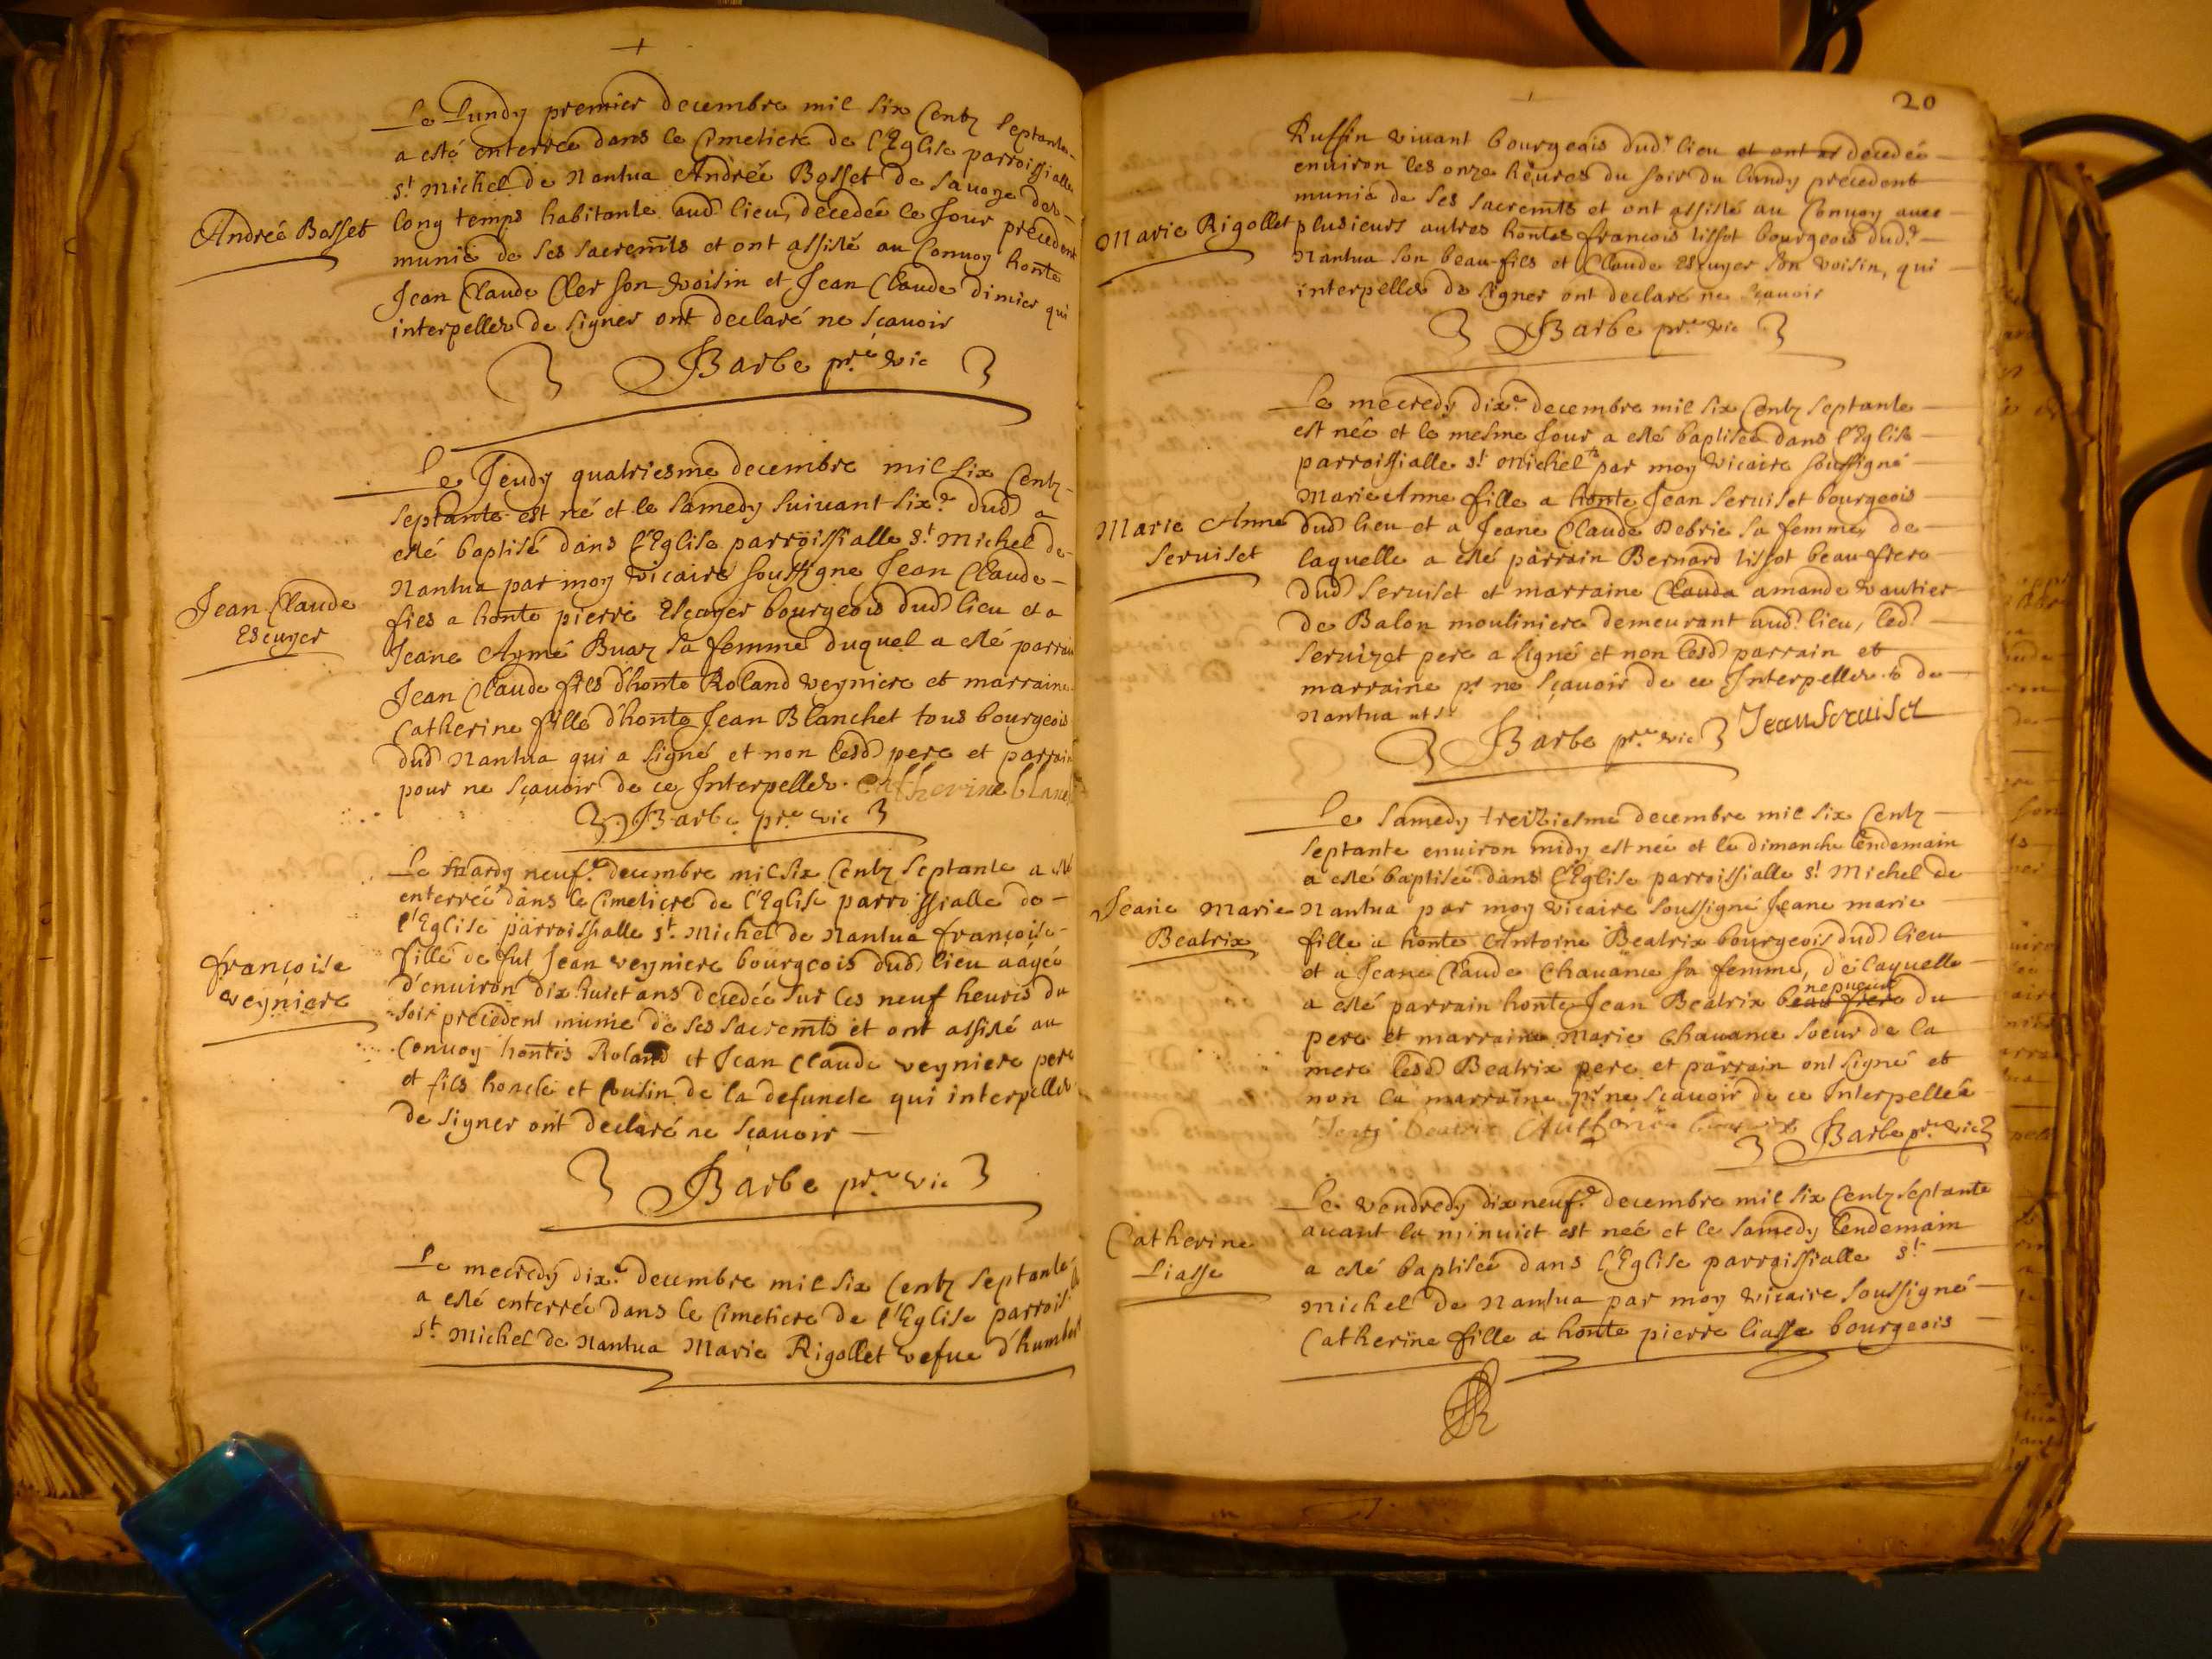 Le Lundy premier decembre mil six Centz septante
a esté enterrée dans le Cimetiere de l'Eglise parroissialle
st Michel de Nantua Andreé Bosset de Sauoye des
Andreé Bosset
long temps habitante aud lieu, decedeé le Jour precedent
munie de ses sacremts et ont assisté au Conuoy honte
Jean Claude Cler son voisin et Jean Claude dimier qui
interpellez de signer ont declaré ne sçauoir
Barbe pre vic
Le Jeudy quatriesme decembre mil six Centz
septante est né et le samedy suiuant sixe dud a
esté baptisé dans l'Eglise parroissialle st Michel de
Nantua par moy vicaire soussigne Jean Claude
Jean Claude
Escuyer
fils a honte pierre Escuyer bourgeois dud lieu et a
Jeane Aymé Buaz sa femme duquel a esté parrain
Jean Claude fils d'honte Roland veyniere et marraine
Catherine fille d'honte Jean Blanchet tous bourgeois
dud Nantua qui a signé et non lesd pere et parrain
pour ne sçauoir de ce Interpellez. Catherine blanc
Barbe pre vic
Le Mardy neufe decembre mil six Centz septante a esté
enterreé dans le Cimetiere de l'Eglise parroissialle de
l'Eglise parroissialle st Michel de Nantua françoise
françoise
veyniere
fille de fut Jean veyniere bourgeois dud lieu aagée
d'enuiron dix huict ans decedée sur les neuf heures du
soir precedent munie de ses sacremts et ont assisté au
Conuoy hontes Roland et Jean Claude veyniere pere
et fils honcle et Cousin de la defuncte qui interpellez
de signer ont declaré ne sçauoir
Barbe pre vic
Le mecredy dixe decembre mil six Centz septante
a esté enterrée dans le Cimetiere de l'Eglise parrois
st Michel de Nantua Marie Rigollet vefue d'humbert
20
Ruffin viuant bourgeois dud lieu et ont decedeé
enuiron les onze heures du soir du lundy precedent
munie de ses sacremts et ont assisté au Conuoy auec
Marie Rigollet
plusieurs autres hontes francois tissot bourgeois dud
Nantua son beau-fils et Claude Escuyer son voisin, qui
interpellez de signer ont declaré ne sçauoir
Barbe pre vic
Le mecredy dixe decembre mil six Centz septante
est neé et le mesme Jour a esté baptiseé dans l'Eglise
parroissialle st Michel par moy vicaire soussigné
Marie Anne fille a honte Jean seruiset bourgeois
Marie Anne
Seruiset
dud lieu et a Jeane Claude Debrie sa femme, de
laquelle a esté parrain Bernard tissot beau frere
dud seruiset et marraine Clauda amande vautier
de Balon mouliniere demeurant aud lieu, led
seruizet pere a signé et non lesd parrain et
marraine pr ne sçauoir de ce Interpellez. de
Nantua
Barbe pre vic Jean Seruiset
Le samedy treiziesme decembre mil six Centz
septante enuiron midy est neé et le dimanche lendemain
a esté baptiseé dans l'Eglise parroissialle st Michel de
Jeane Marie
Beatrix
Nantua par moy vicaire soussigné Jeane marie
fille a honte Antoine Beatrix bourgeois dud lieu
et a Jeane Claude Chauance sa femme, de laquelle
nepueu
a esté parrain honte Jean Beatrix beau frere du
pere et marraine Marie Chauance soeur de la
mere lesd Beatrix pere et parrain ont signé et
non la marraine pr ne sçauoir de ce Interpelleé
Beatrix Anthoine
Barbe pre vic
Le vendredy dixneufe decembre mil six Centz septante
Catherine
Liasse
auant la minuict est neé et le samedy lendemain
a esté baptiseé dans l'Eglise parroissialle st
Michel de Nantua par moy vicaire soussigné
Catherine fille a honte pierre liasse bourgeois